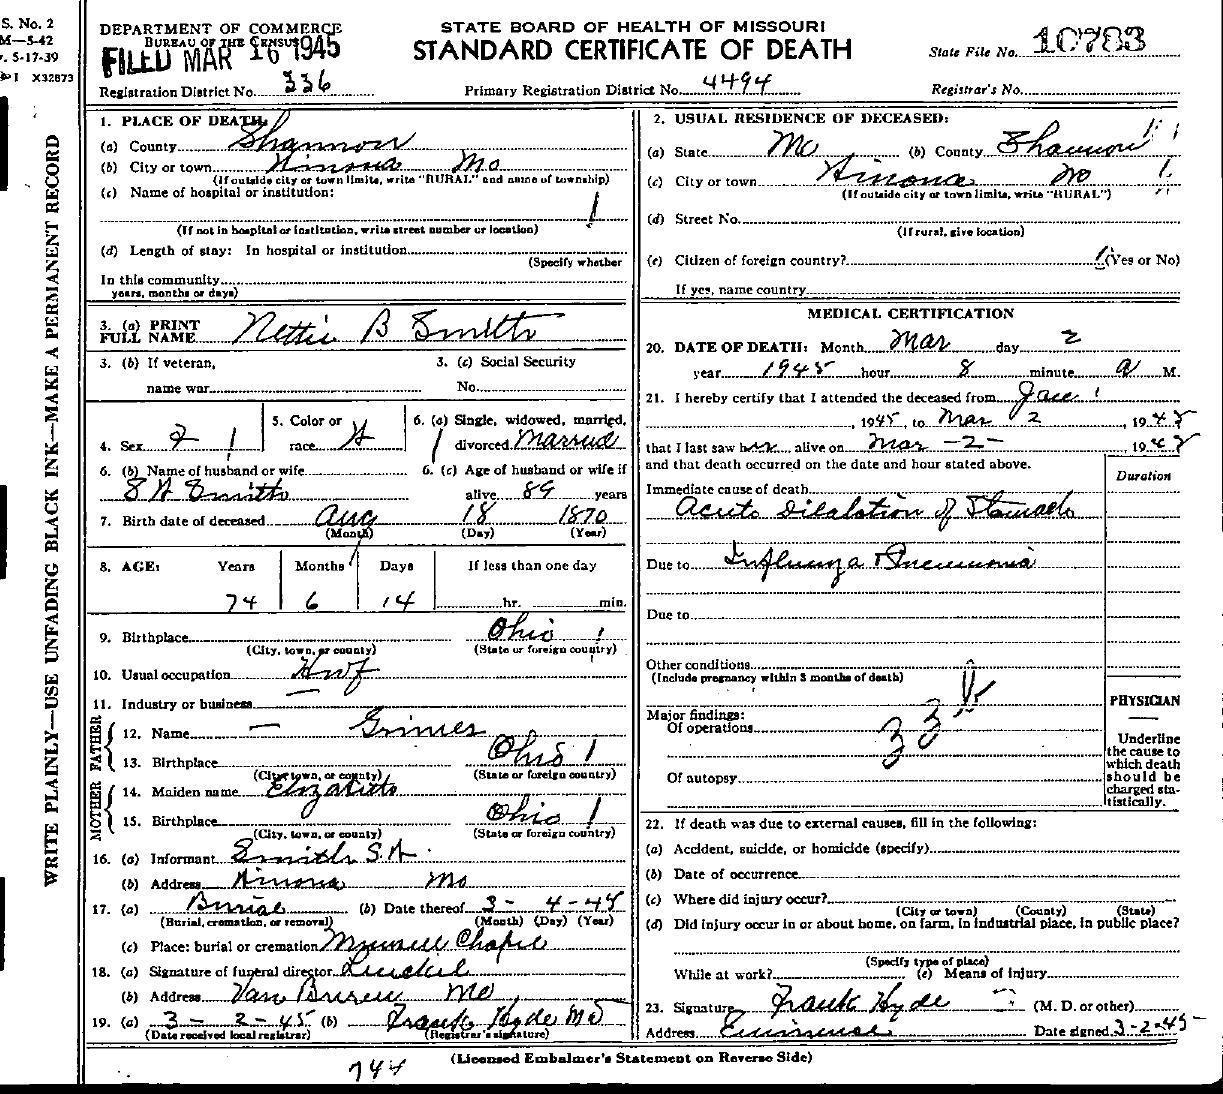 S. No. 2
M—5-42
v. 5-17-39
I X32873
WRITE PLAINLY—USE UNFADING BLACK INK—MAKE A PERMANENT RECORD
DEPARTMENT OF COMMERCE
BUREAU OF THE CENSUS
FILED MAR 16 1945
STATE BOARD OF HEALTH OF MISSOURI
STANDARD CERTIFICATE OF DEATH
State File No. 10783
Registration District No. 336
Primary Registration District No. 4494
Registrar's No.
1. PLACE OF DEATH:
(a) County Shannon
(b) City or town Winona Mo
(If outside city or town limits, write "RURAL" and name of township)
(c) Name of hospital or institution:
(If not in hospital or institution, write street number or location)
(d) Length of stay: In hospital or institution
(Specify whether
In this community
years, months or days)
3. (a) PRINT FULL NAME Nettie B Smith
3. (b) If veteran, name war
3. (c) Social Security No.
4. Sex F
5. Color or race W
6. (a) Single, widowed, married, divorced Married
6. (b) Name of husband or wife S A Smith
6. (c) Age of husband or wife if alive 89 years
7. Birth date of deceased Aug 18 1870
(Month) (Day) (Year)
8. AGE: Years Months Days If less than one day
74 6 14 hr. min.
9. Birthplace Ohio
(City, town, or county) (State or foreign country)
10. Usual occupation Hwf
11. Industry or business —
FATHER
12. Name — Grimes
13. Birthplace Ohio
(City, town, or county) (State or foreign country)
MOTHER
14. Maiden name Elizabeth
15. Birthplace Ohio
(City, town, or county) (State or foreign country)
16. (a) Informant Smith S.A.
(b) Address Winona Mo
17. (a) Burial (b) Date thereof 3-4-45
(Burial, cremation, or removal) (Month) (Day) (Year)
(c) Place: burial or cremation Chapel
18. (a) Signature of funeral director
(b) Address Van Buren Mo
19. (a) 3-2-45 (b) Frank Hyde MD
(Date received local registrar) (Registrar's signature)
2. USUAL RESIDENCE OF DECEASED:
(a) State Mo (b) County Shannon
(c) City or town Winona Mo
(If outside city or town limits, write "RURAL")
(d) Street No.
(If rural, give location)
(e) Citizen of foreign country? (Yes or No)
If yes, name country
MEDICAL CERTIFICATION
20. DATE OF DEATH: Month Mar day 2
year 1945 hour 8 minute a M.
21. I hereby certify that I attended the deceased from Jan 1
, 1945, to Mar 2, 1945
that I last saw her alive on Mar -2- 1945
and that death occurred on the date and hour stated above.
Duration
Immediate cause of death
Acute Dilalation of Stomach
Due to Influenza Pneumonia
Due to
Other conditions
(Include pregnancy within 3 months of death)
Major findings:
Of operations
33
Of autopsy
PHYSICIAN
Underline the cause to which death should be charged statistically.
22. If death was due to external causes, fill in the following:
(a) Accident, suicide, or homicide (specify)
(b) Date of occurrence
(c) Where did injury occur?
(City or town) (County) (State)
(d) Did injury occur in or about home, on farm, in industrial place, in public place?
(Specify type of place)
While at work? (e) Means of injury
23. Signature Frank Hyde (M. D. or other)
Address Eminence Date signed 3-2-45
(Licensed Embalmer's Statement on Reverse Side)
744